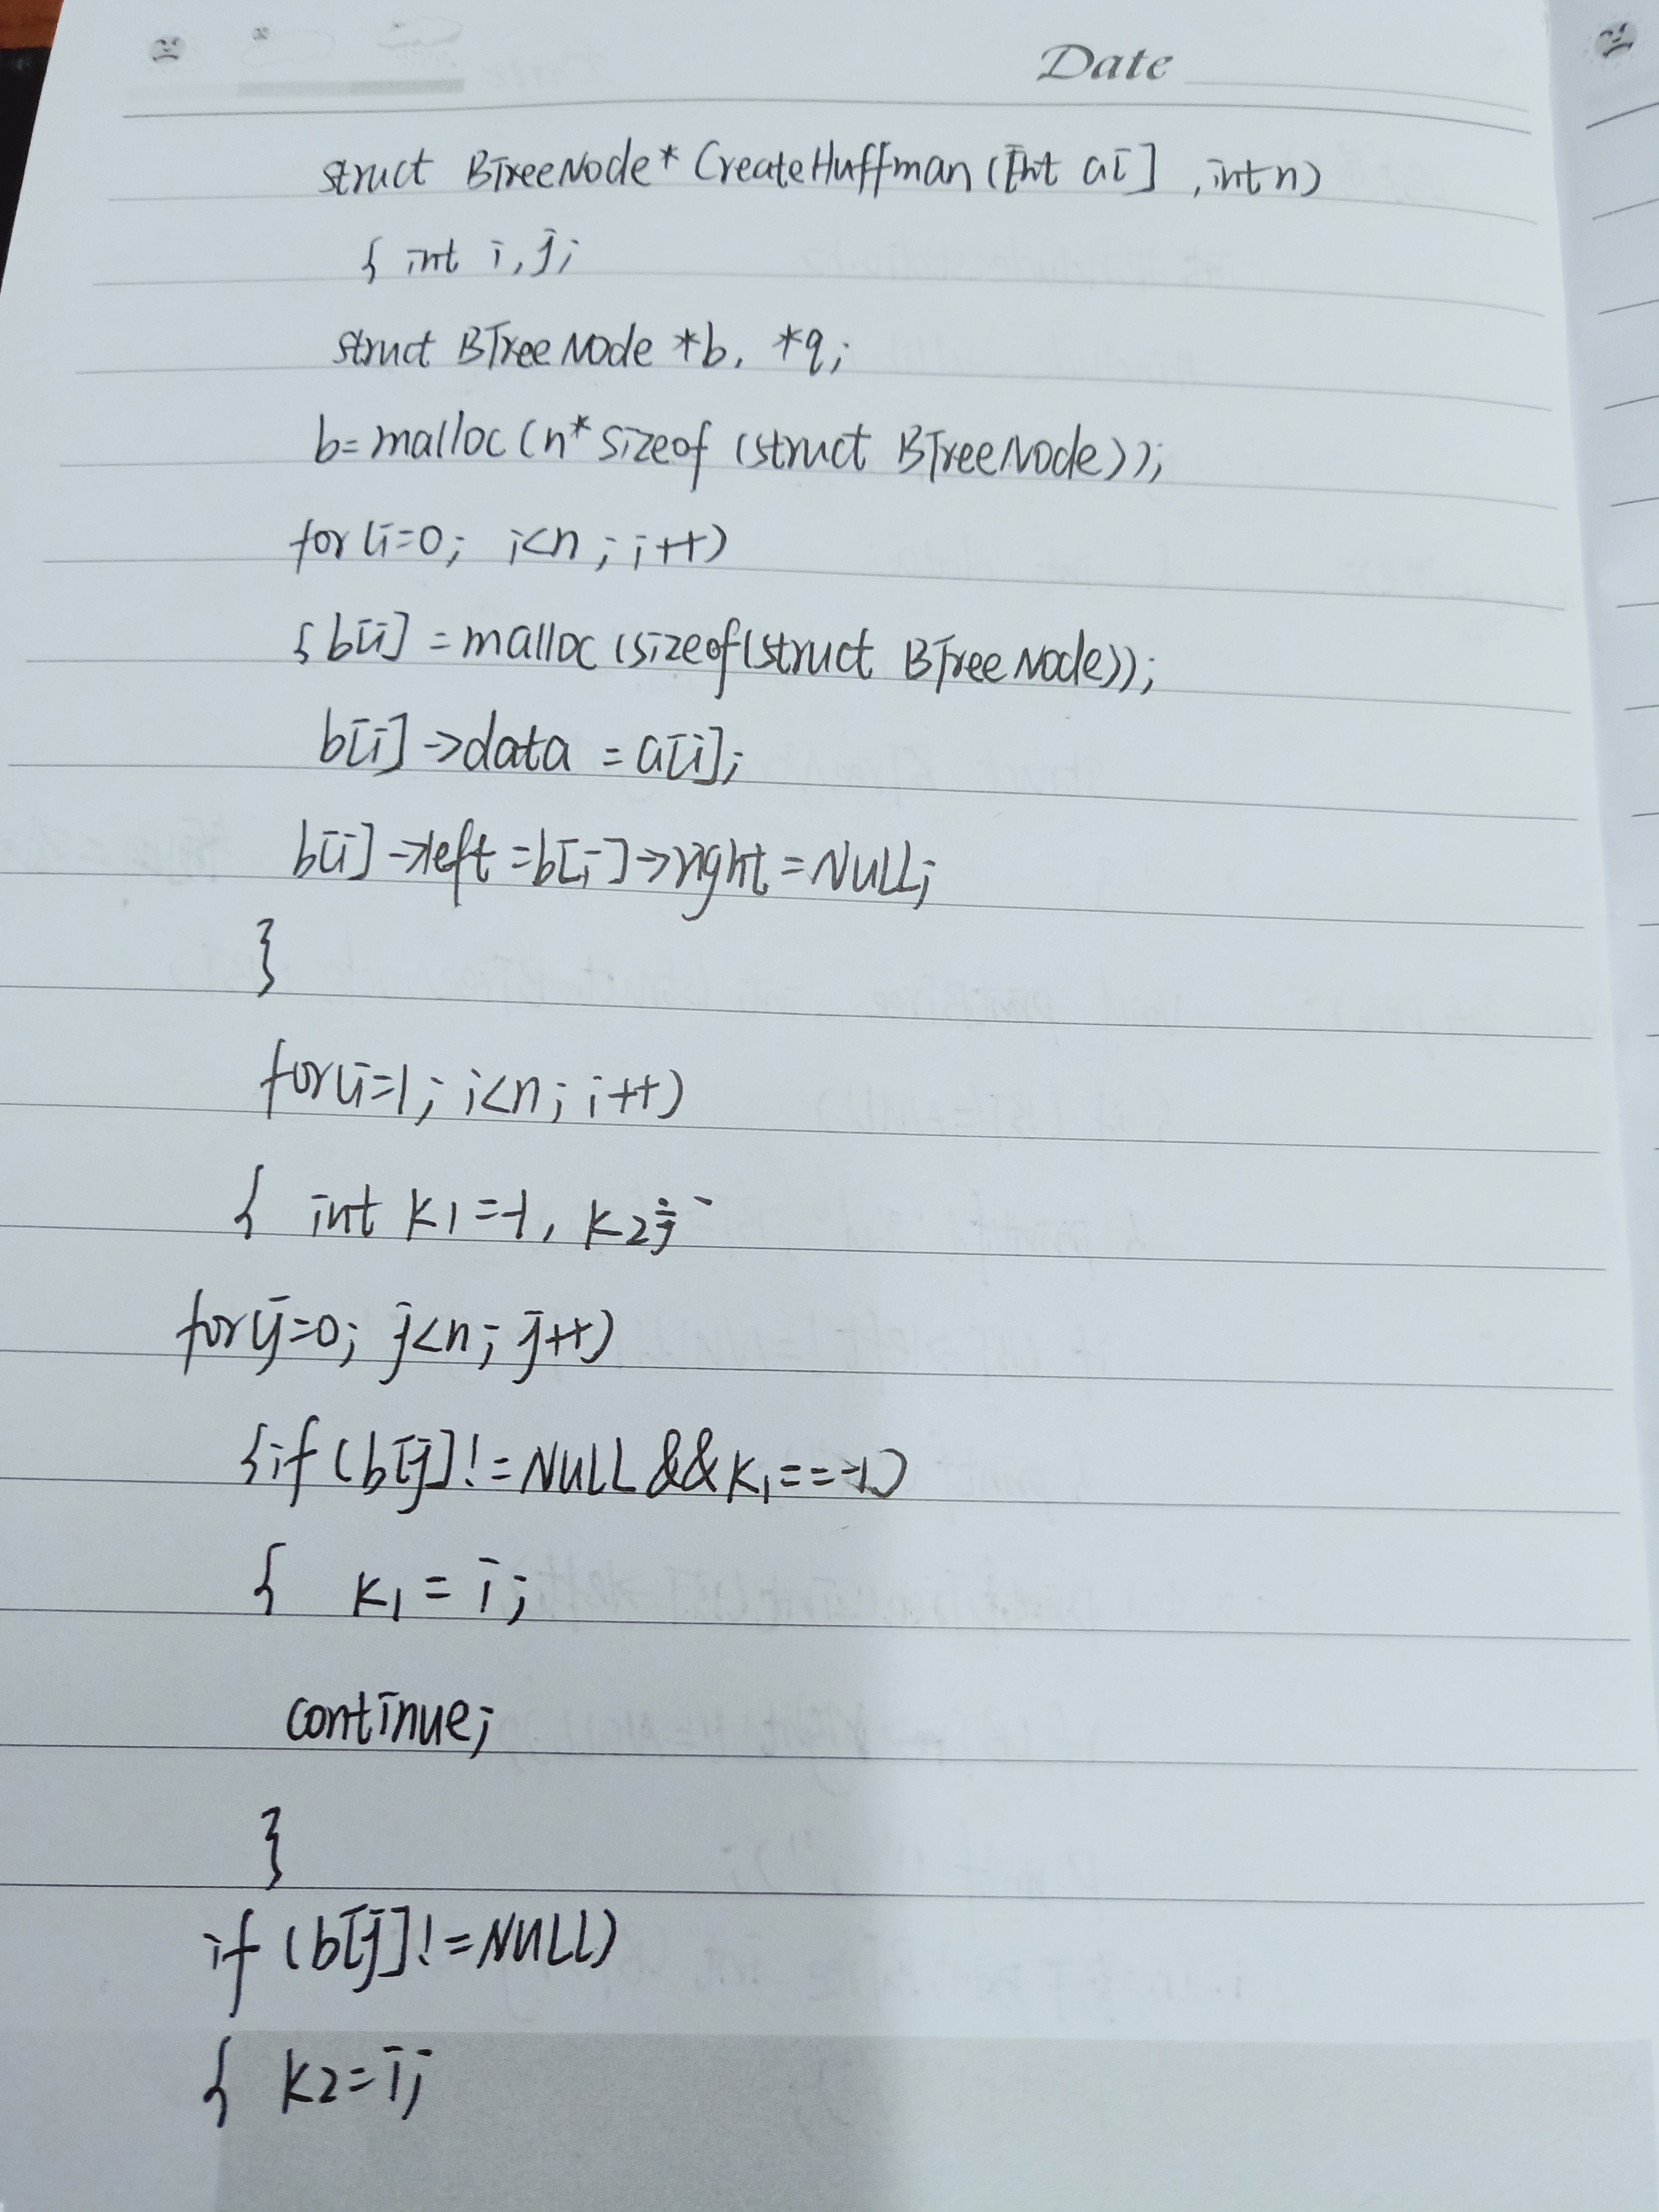 Date
struct BTreeNode* CreateHuffman (int a[] , int n)
{ int i, j;
struct BTreeNode *b, *q;
b= malloc (n* sizeof (struct BTreeNode));
for (i=0; i<n; i++)
{ b[i] = malloc (sizeof(struct BTreeNode));
b[i] ->data = a[i];
b[i] ->left = b[i] ->right = NULL;
}
for (i=1; i<n; i++)
{ int k1 =-1, k2;
for (j=0; j<n; j++)
{if (b[j] != NULL && k1 == -1)
{ k1 = i;
continue;
}
if (b[j] != NULL)
{ k2=i;